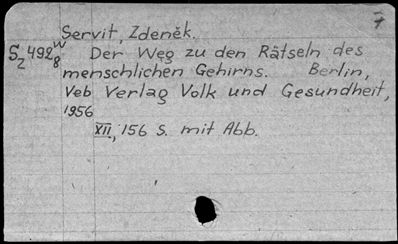 Servit, Zdeněk.
S2 492 w8 Der Weg zu den Rätseln des
menschlichen Gehirns. Berlin,
Veb Verlag Volk und Gesundheit,
1956
XII, 156 S. mit Abb.